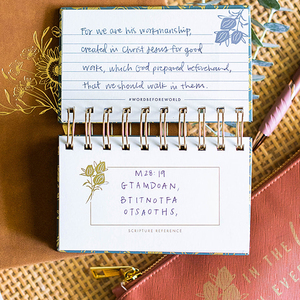 For we are his workmanship,
created in Christ Jesus for good
works, which God prepared beforehand,
that we should walk in them.
#WORDBEFOREWORLD
M28:19
GTAMDOAN,
BTITNOTFA
OTSAOTHS,
SCRIPTURE REFERENCE
IN THE
EVE